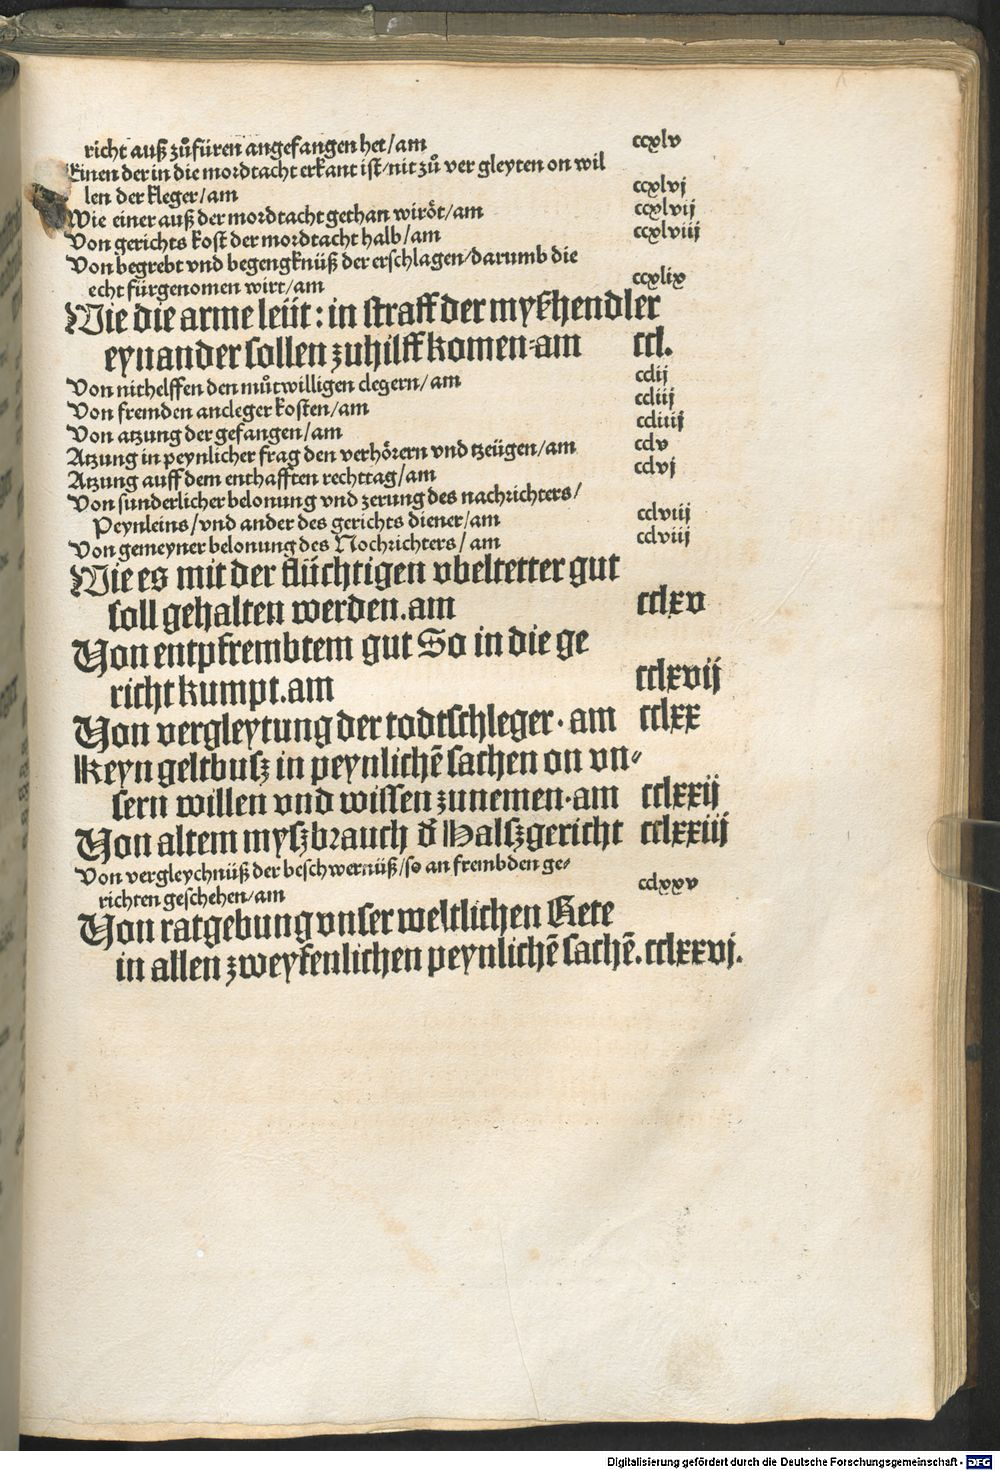 richt auß zůfüren angefangen het/am ccxlv
Einen der in die mordtacht erkant ist/nit zů ver gleyten on wil
len der kleger/am ccxlvj
Wie einer auß der mordtacht gethan wirdt/am ccxlvij
Von gerichts kost der mordtacht halb/am ccxlviij
Von begrebt vnd begengknüß der erschlagen/darumb die
echt fürgenomen wirt/am ccxlix
Wie die arme leüt: in straff der myßhendler
eynander sollen zuhilff komen-am ccl.
Von nithelffen den můtwilligen clegern/am cclij
Von fremden ancleger kosten/am ccliij
Von atzung der gefangen/am ccliiij
Atzung in peynlicher frag den verhörern vnd tzeügen/am cclv
Atzung auff dem enthafften rechttag/am cclvj
Von sunderlicher belonung vnd zerung des nachrichters/
Peynleins/vnd ander des gerichts diener/am cclviij
Von gemeyner belonung des Nochrichters/am cclviij
Wie es mit der flüchtigen vbeltetter gut
soll gehalten werden.am cclxv
Von entpfrembtem gut So in die ge
richt kumpt.am cclxvij
Von vergleytung der todtschleger·am cclxx
Keyn geltbusz in peynlichē sachen on vn⸗
sern willen vnd wissen zunemen·am cclxxij
Von altem myszbrauch d̕ Halszgericht cclxxiij
Von vergleychnüß der beschwernüß/so an frembden ge⸗
richten geschehen/am cclxxv
Von ratgebung vnser weltlichen Rete
in allen zweyfenlichen peynlichē sachē.cclxxvj.
Digitalisierung gefördert durch die Deutsche Forschungsgemeinschaft - DFG